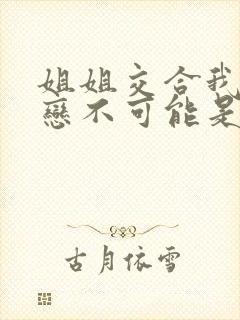 姐姐交合我
戀不可能是
古月依雪